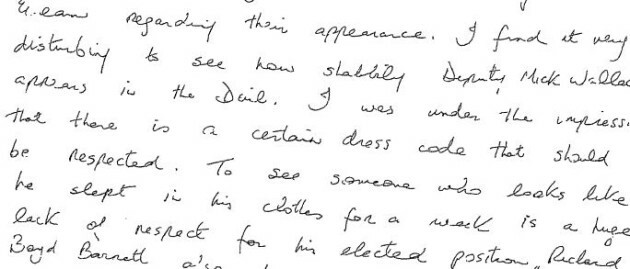 regarding their appearance. I find it very
disturbing to see how shabbily Deputy Mick Wallac
appears in the Dail. I was under the impress
that there is a certain dress code that should
be respected. To see someone who looks like
he slept in his clothes for a week is a huge
lack of respect for his elected position, Richard
Boyd Barrett also